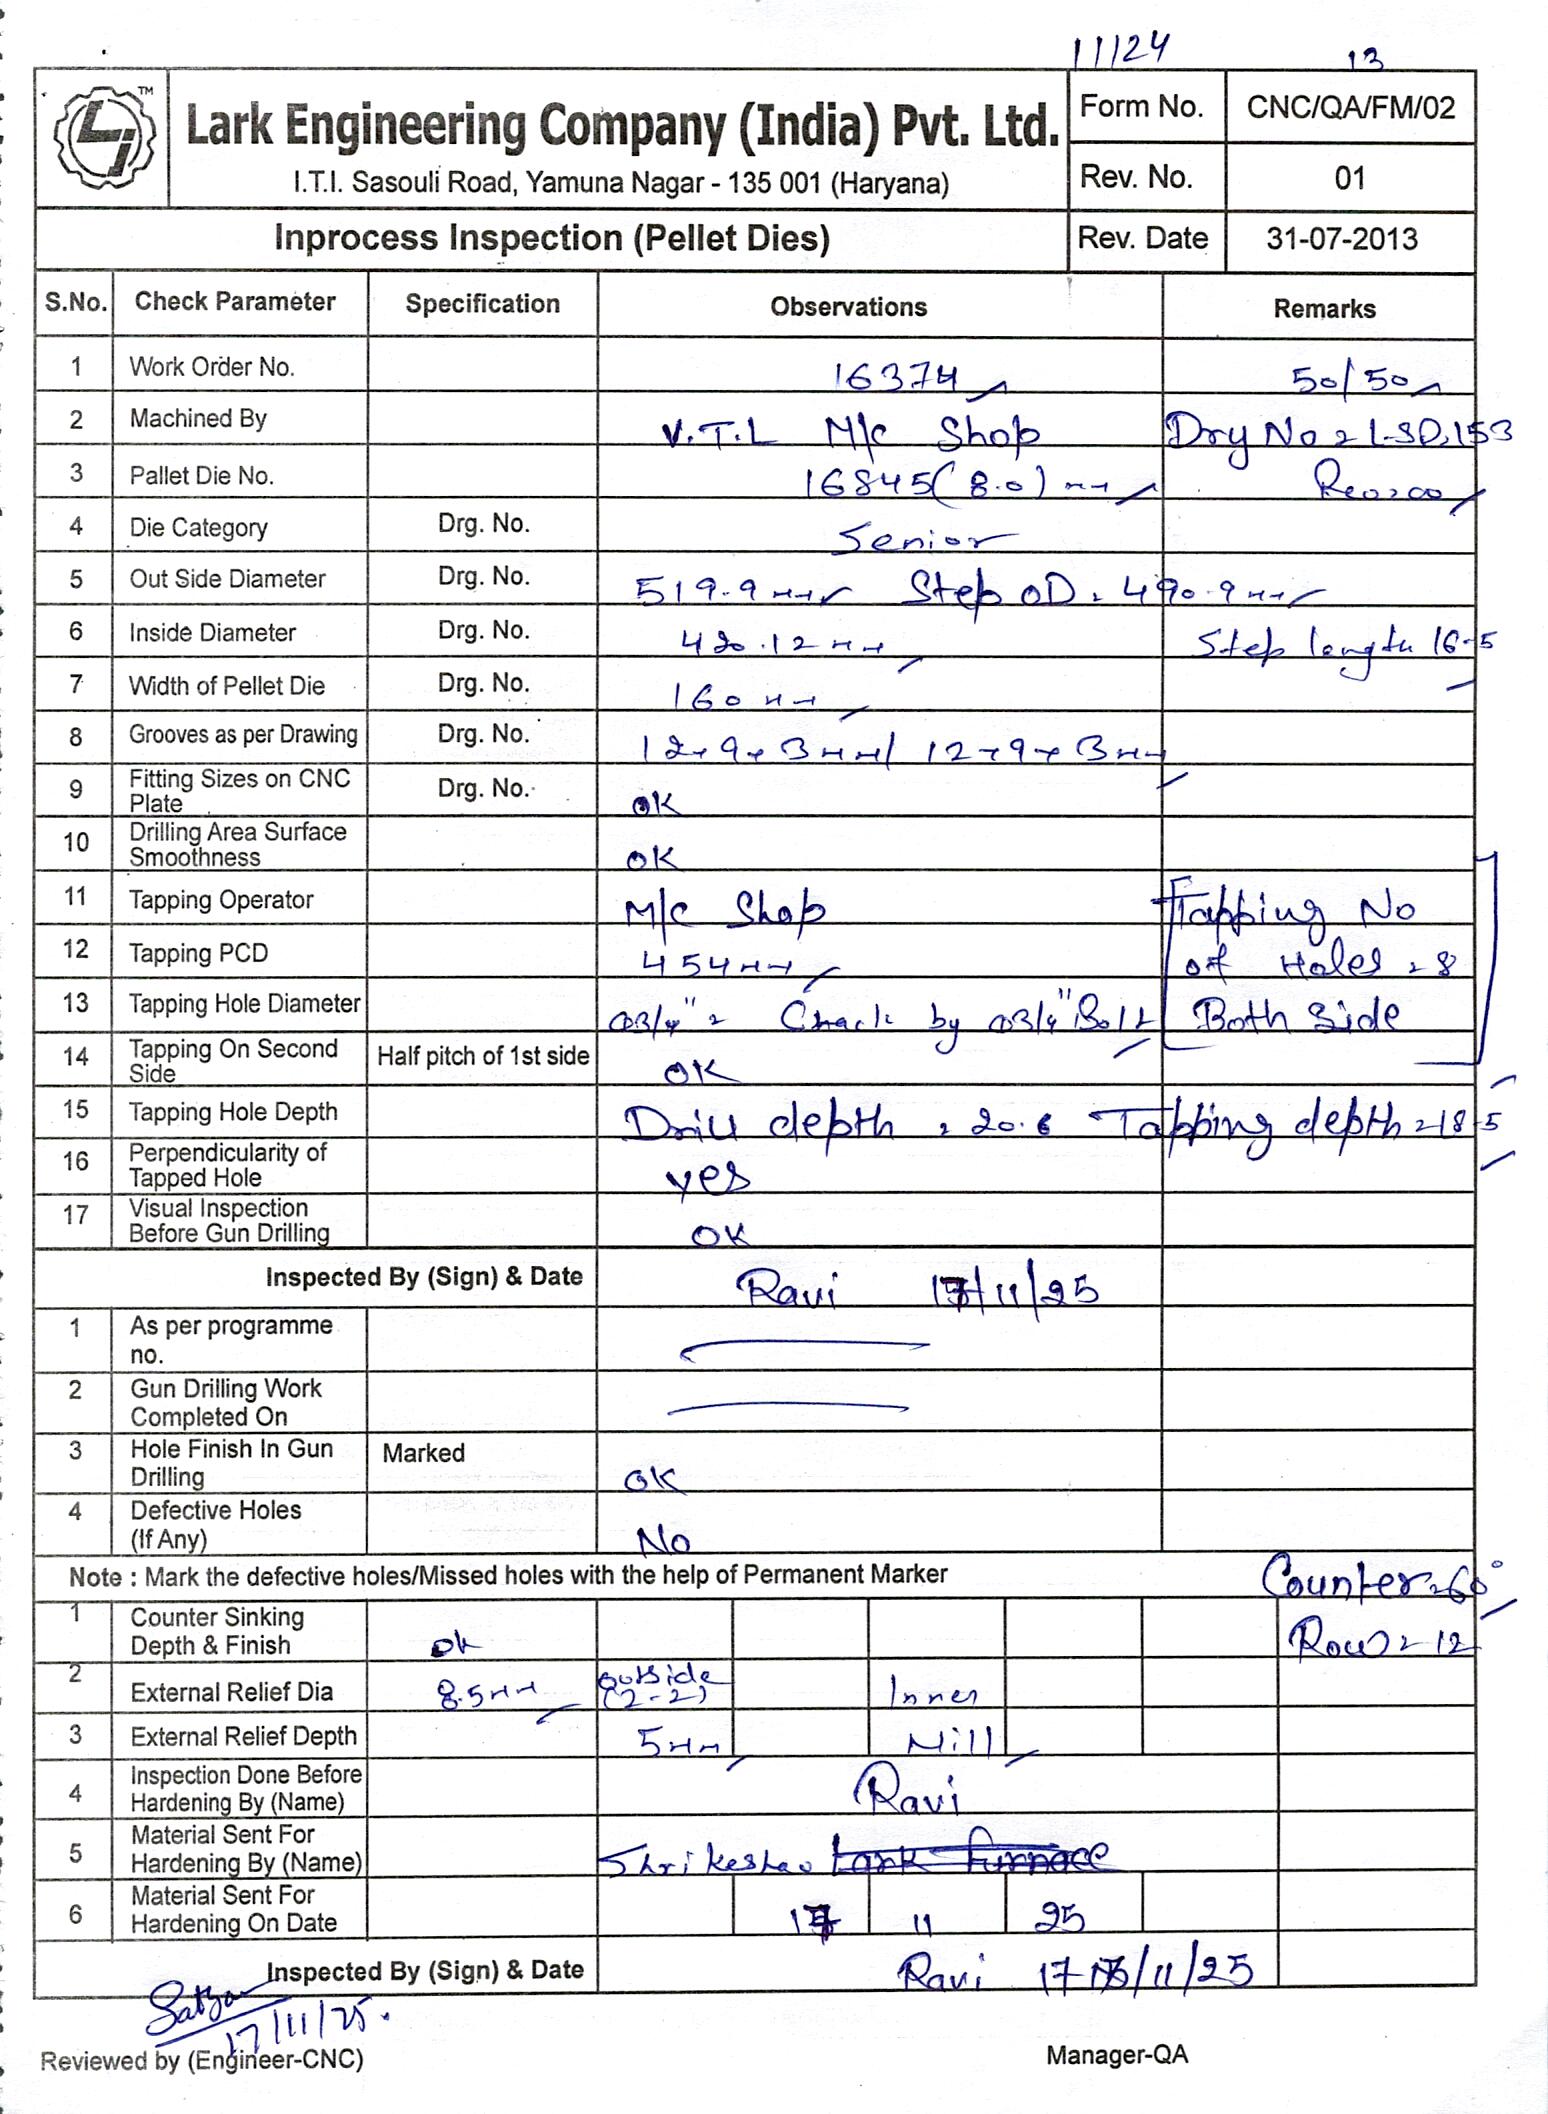 11/24 13
TM
Lark Engineering Company (India) Pvt. Ltd.
I.T.I. Sasouli Road, Yamuna Nagar - 135 001 (Haryana)
Form No. CNC/QA/FM/02
Rev. No. 01
Inprocess Inspection (Pellet Dies) Rev. Date 31-07-2013
S.No. Check Parameter Specification Observations Remarks
1 Work Order No. 16374 50/50
2 Machined By V.T.L M/c Shop
3 Pallet Die No. 16845 (8.0) mm
4 Die Category Drg. No. Senior
5 Out Side Diameter Drg. No. 519.9 mm Step OD = 490.9 mm
6 Inside Diameter Drg. No. 420.12 mm Step length 16.5
7 Width of Pellet Die Drg. No. 160 mm
8 Grooves as per Drawing Drg. No. 12×9×3mm/ 12×9×3mm
9 Fitting Sizes on CNC Plate Drg. No. OK
10 Drilling Area Surface Smoothness OK
11 Tapping Operator M/c Shop Tapping No
12 Tapping PCD 454mm of Holes = 8
13 Tapping Hole Diameter Ø3/4" = Check by Ø3/4" Bolt Both Side
14 Tapping On Second Side Half pitch of 1st side OK
15 Tapping Hole Depth Drill depth = 20.6 Tapping depth = 18.5
16 Perpendicularity of Tapped Hole yes
17 Visual Inspection Before Gun Drilling OK
Inspected By (Sign) & Date Ravi 17/11/25
1 As per programme no.
2 Gun Drilling Work Completed On
3 Hole Finish In Gun Drilling Marked OK
4 Defective Holes (If Any) No
Note : Mark the defective holes/Missed holes with the help of Permanent Marker Counter = 60°
1 Counter Sinking Depth & Finish ok Row = 12
2 External Relief Dia 8.5mm outside (2-2) Inner
3 External Relief Depth 5mm Nill
4 Inspection Done Before Hardening By (Name) Ravi
5 Material Sent For Hardening By (Name) Shri keshav Lark Furnace
6 Material Sent For Hardening On Date 17 11 25
Inspected By (Sign) & Date Ravi 17/11/25
17/11/25.
Reviewed by (Engineer-CNC) Manager-QA